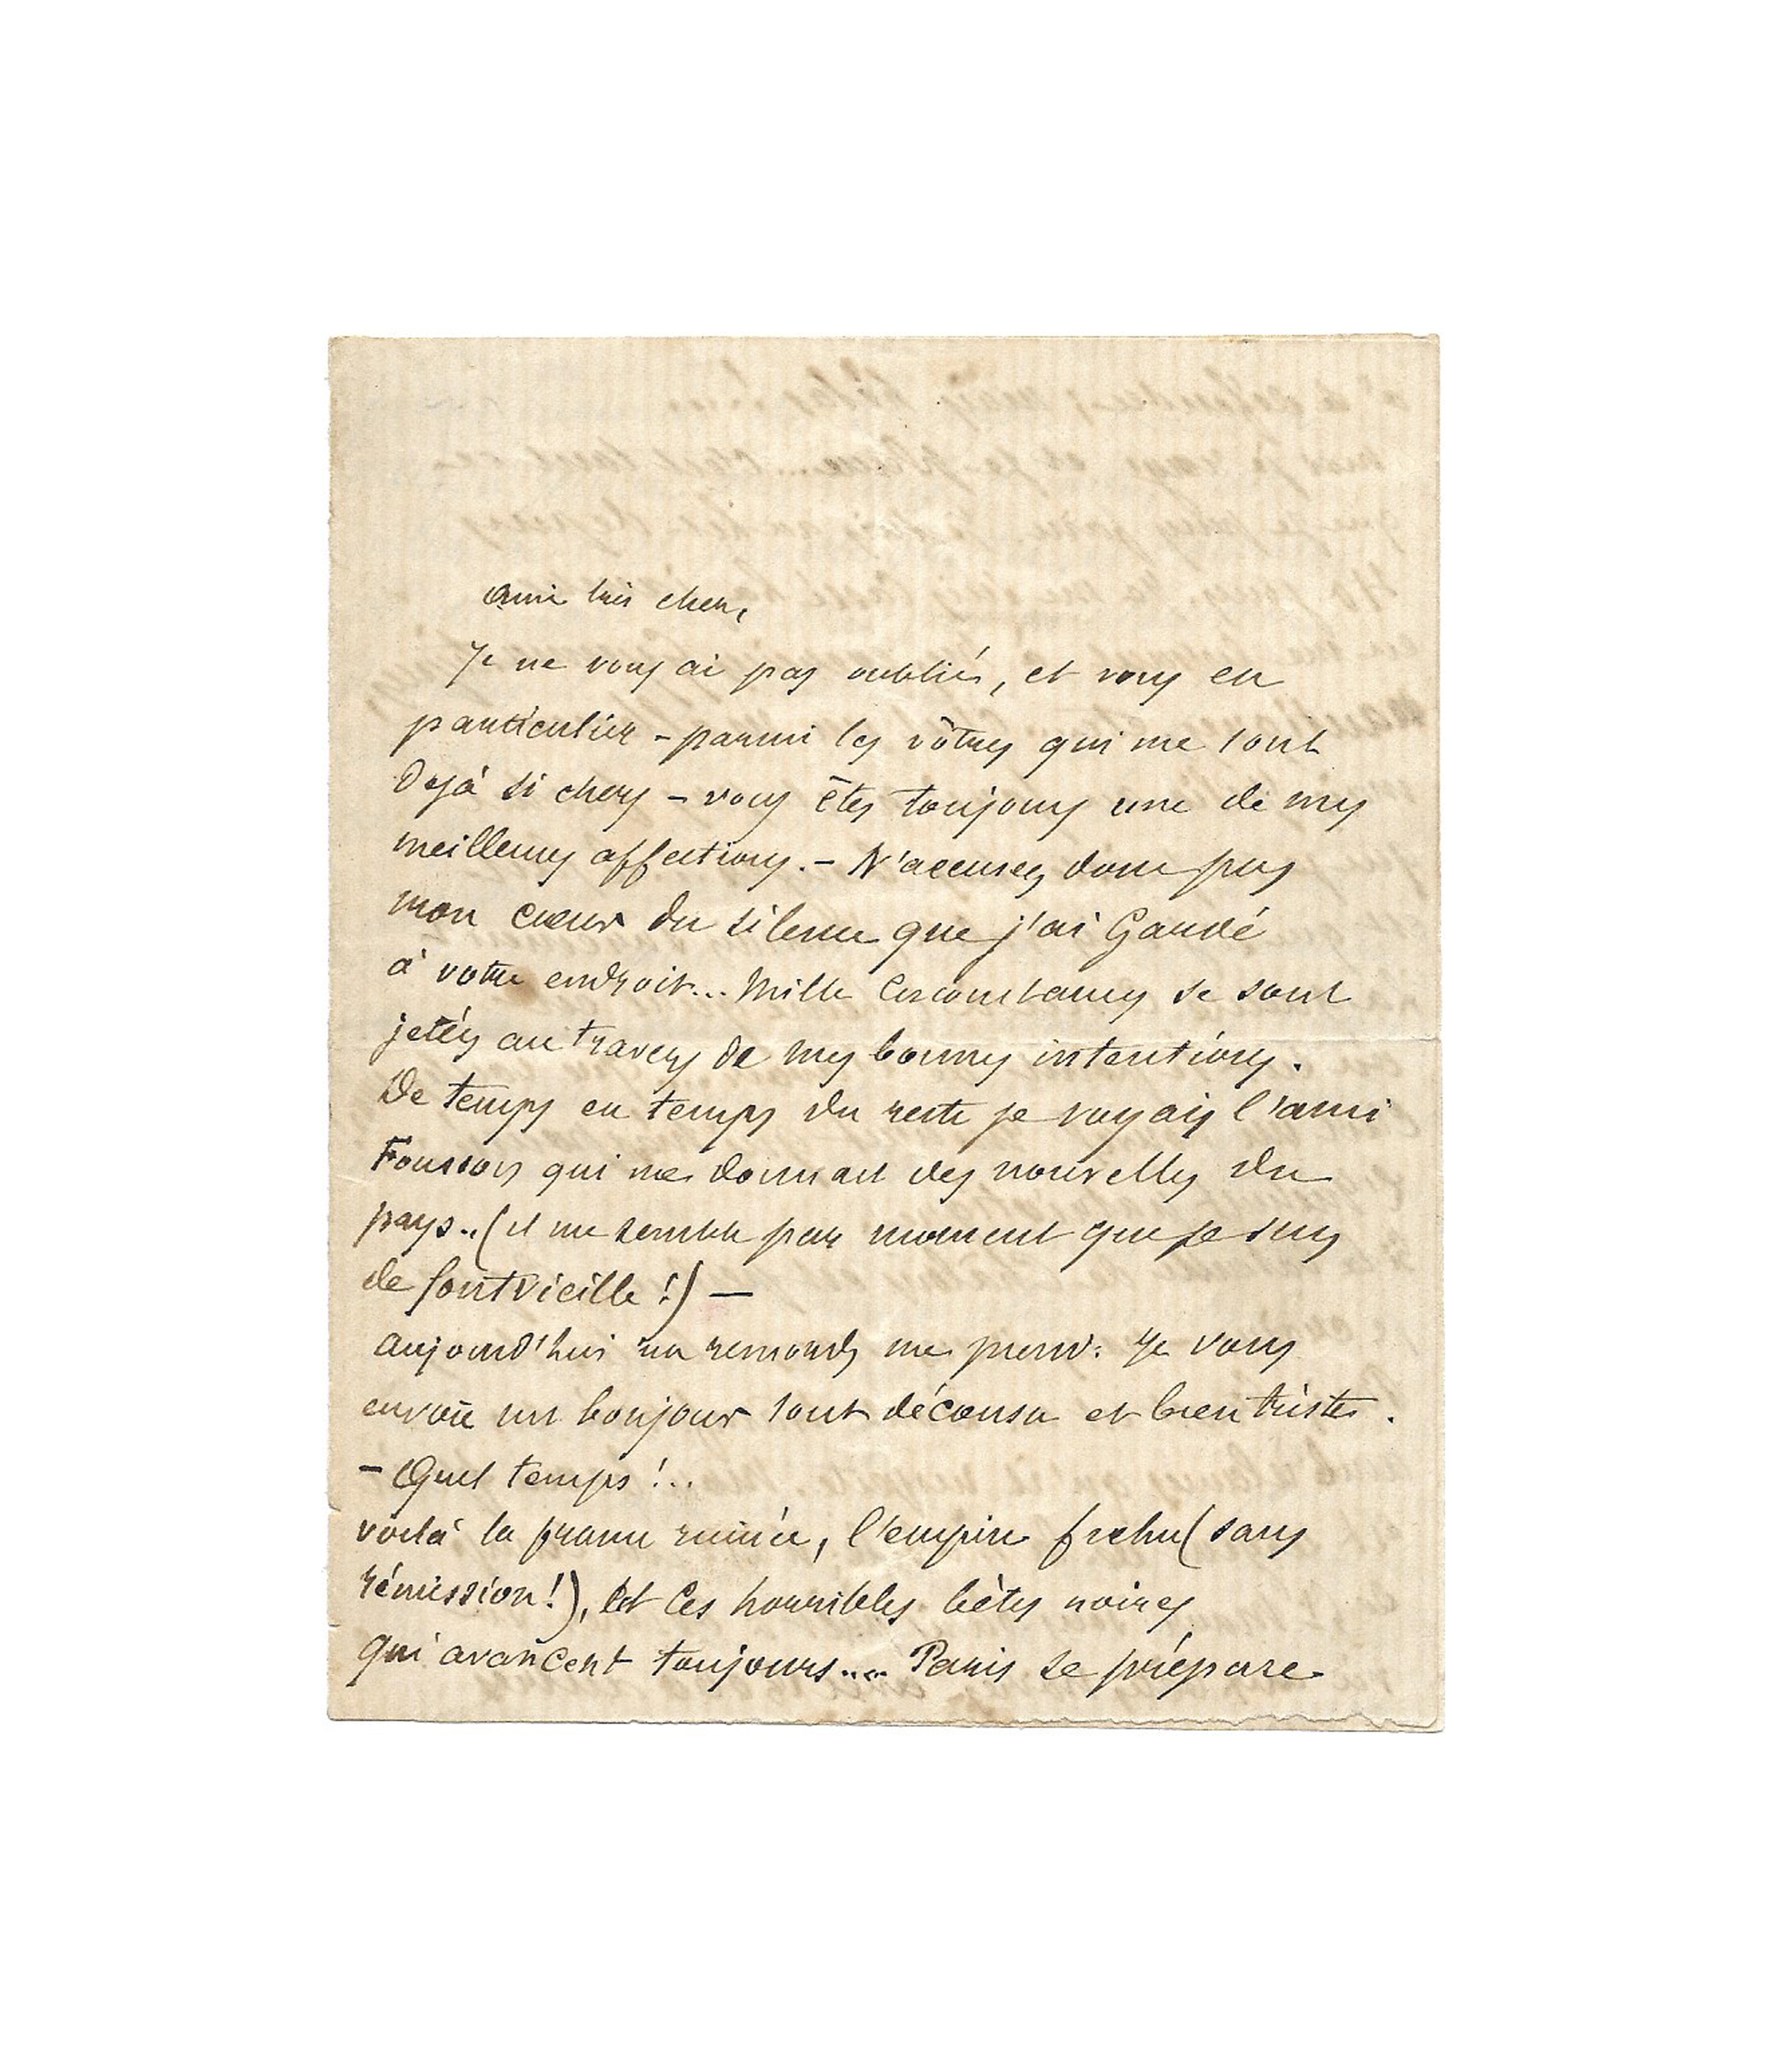 ami très cher,
Je ne vous ai pas oubliés, et vous en
particulier – parmi les vôtres qui me sont
déjà si chers – vous êtes toujours une de mes
meilleures affections. – N'accusez donc pas
mon cœur du silence que j'ai Gardé
à votre endroit... Mille Circonstances se sont
jetées au travers de mes bonnes intentions.
De temps en temps du reste je voyais l'ami
qui me donnait des nouvelles du
pays.. (il me semble par moment que je suis
de fontvieille !) —
aujourd'hui un remords me prend. Je vous
envoie un bonjour tout décousu et bien triste.
– Quel temps !..
voilà la france ruinée, l'empire fichu (sans
rémission !), Et Ces horribles bêtes noires
qui avancent toujours.... Paris se prépare